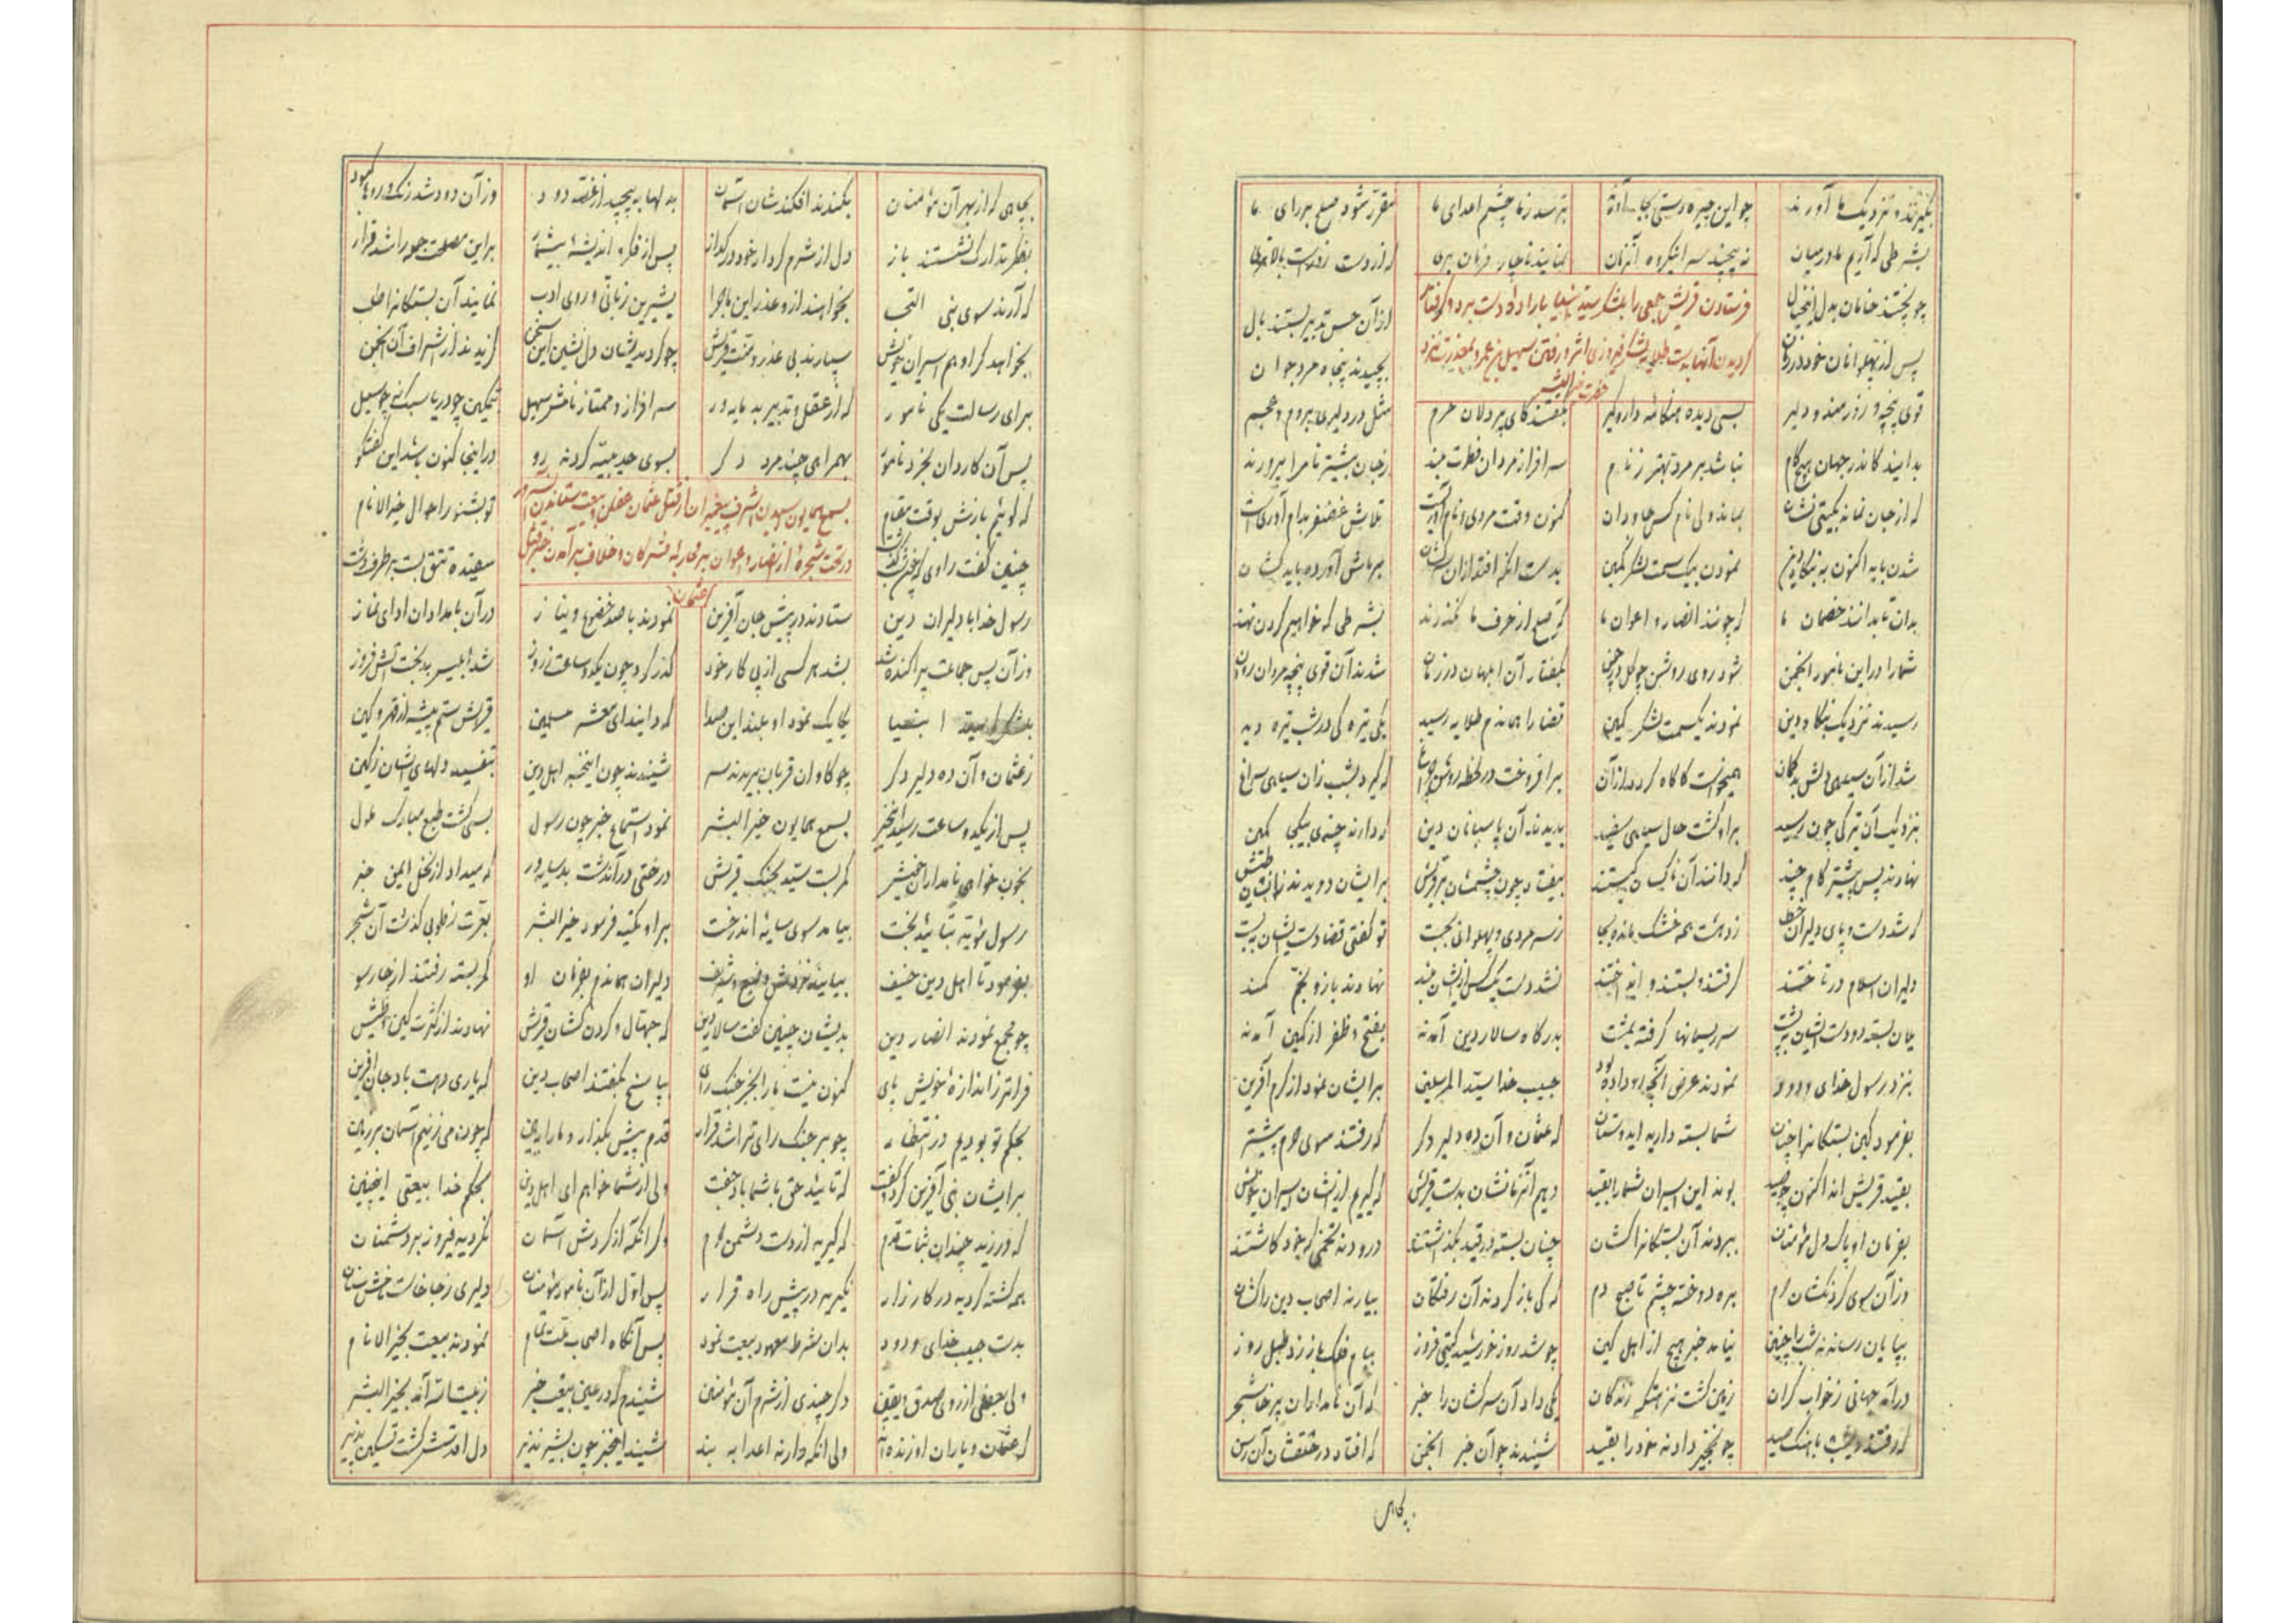 بگیرند و نزدیک ما آورند چو این چیره دستی بجا آورند بترسد ز ما چشم اعدای ما مقرر شود صلح بر رای ما
بشرطی که آریم ما در میان نه پیچند سر نمایند ناچار فرمان بری که از دست
چو پختند خامان بدل این خیال فرستادن قریش جمعی را بلشکر سید انبیا باراده دست برد و گرفتار از آن حسن تدبیر بستند بال
پس از پهلوانان خود گردیدن آنها بدست طلایه لشکر فیروزی اثر و رفتن سهیل بن عمرو بمعذرت نزد حضرت خیر البشر بچیدند پنجاه مرد جوان
قوی پنجه و زورمند و دلیر بسی دیده هنگامه دار و گیر بگفتند کای پردلان حرم مثل در دلیری بروم و عجم
بدانید کاندر جهان هیچ کام نباشد بر مرد بهتر ز نام سر افراز مردان فطرت بلند ز جان بیشتر نام را پرورند
که از جان نماند بگیتی نشان بماند ولی نام کس جاودان کنون وقت مردی و نام آوریست تلاش غضنفر بدام آوریست
شدن باید اکنون به بنگاه دین نمودن بیک سمت لشکر کمین بدست آنکه افتد از آن سرکشان برماش آورده باید کشان
بدان تا بدانند خصمان ما که چونند انصار و اعوان ما که صلح از حرف ما نگذرند بشرطی که خواهیم گردن نهند
شما را در این نامور انجمن شود روی روشن چو گل در چمن بگفتار آن ابلهان در زمان شدند آن قوی پنجه مردان روان
رسیدند نزدیک بنگاه دین نمودند یکسمت لشکر کمین قضا را همان دم طلایه رسید یکی تیره گی در شب تیره دید
شد از آن سیاهی دلش بدگمان همیخواست کاگاه گردد از آن برافروخت در لحظه روشن چراغ که گیرد بشب زان سیاهی سراغ
بنزدیک آن تیرگی چون رسید بر او گشت حال سیاهی سفید بدیدند آن پاسبانان دین که دارند جمعی بیکجا کمین
نهادند پس پیشتر گام چند که دانند آن ناکسان کیستند بیفتاد چون چشمشان بر قریش بر ایشان دویدند
که شد دست و پای دلیران خطا ز دهشت همه خشک مانده بجا ز سر مردی و پهلوانی بجست تو گفتی قضا دست ایشان ببست
دلیران اسلام در تاختند گرفتند و بستند و انداختند نشد دست یک کس از ایشان بلند نهادند بازو بخم کمند
میان بسته دو دست ایشان به پشت سر ریسمانها گرفته بمشت بدرگاه سالار دین آمدند بفتح و ظفر از کمین آمدند
بنزد رسول خدای ودود نمودند عرض آنچه رو داده بود حبیب خدا سید المرسلین بر ایشان نمود از کرم آفرین
بفرمود کین بستگانرا چنان شما بسته دارید ایدوستان که عثمان و آن ده دلیر دگر که رفتند سوی حرم پیشتر
بقید قریش اند اکنون چو صید بوند این اسیران شما را بقید دهیم آنزمانشان بدست قریش که گیریم از ایشان اسیران خویش
بفرمان او پاک دل مؤمنان ببردند آن بستگانرا کشان چنان بسته در قید بگذاشتند درودند تخمی که خود کاشتند
وز آن سوی گردنکشان حرم بره دوخته چشم تا صبح دم که کی باز گردند آن رفتگان بیارند اصحاب دین را کشان
بپایان رساندند شب را چنین نیامد خبر هیچ از اهل کین چو شد روز خورشید گیتی فروز ببام فلک باز زد طبل روز
در آمد جهانی ز خواب گران زمین گشت پر هنگامه زندگان یکی داد آن سرکشان را خبر که آن نامداران پرخاشخر
که رفتند دیشب بآهنگ صید چو نخجیر دادند خود را بقید شنیدند چو آن خبر انجمن که افتاد در حلقشان آن رسن
بچاهی
بچاهی که از بهر آن مؤمنان بکندند افکندشان آسمان بدلها به پیچید از غصه دود وز آن دود شد رنگ روها کبود
بفکر تدارک نشستند باز دل از شرم کردار خود در گداز پس از فکر و اندیشه بیشمار بر این مصلحت جو را شد قرار
که آرند سوی نبی التجا بخواهند از و عذر این ماجرا بشیرین زبانی و روی ادب نمایند آن بستگانرا طلب
بخواهد گر او هم اسیران خویش سپارند بی عذر و منت قریش چو کردند یشان دل نشین این سخن گزیدند از اشراف آن انجمن
برای رسالت یکی نامور که از عقل و تدبیر بد بایه ور سر افراز و ممتاز نامش سهیل بتمکین چو دریا سبک پی چو سیل
پس آن کاردان بخرد نامجو بهمراهی چند مرد دگر بسوی حدیبیه کردند رو در اینجا کنون باشد این گفتگو
که گوئیم بازش بوقت مقام بسمع همایون رسیدن اشرف پیغمبران از قتل عثمان عفان و بیعت ستاندن آنسرور تو بشنو ز احوال خیر الانام
چنین گفت راوی در تحت شجره از انصار و اعوان بر محاربه مشرکان و خلاف بر آمدن خبر قتل عثمان سفیده تتق بست بر طرف دشت
رسول خدا با دلیران دین ستادند در پیش جان آفرین نمودند با صد خضوع و نیاز در آن بامدادان ادای نماز
وز آن پس جماعت پراکنده شد بشد هر کسی از پی کار خود گذر کرد چون یکدو ساعت ز روز شد ابلیس بدبخت آتش فروز
بلشکرگه سید انبیا یکایک نمود او بلند این صدا که دانید ای معشر مسلمین قریش ستم پیشه از قهر و کین
ز عثمان و آن ده دلیر دگر چو گاوان قربان بریدند سر شنیدند چون اینخبر اهل دین بتفسید دلهای ایشان ز کین
پس از یکدو ساعت رسید اینخبر بسمع همایون خیر البشر نمود استماع خبر چون رسول بسی گشت طبع مبارک ملول
بخون خواهی نامداران خویش کمر بست سید بجنگ قریش درختی در آندشت بد سایه ور که میداد از نخل ایمن خبر
رسول مؤید بتائید بخت بیامد سوی سایه آندرخت بر او تکیه فرمود خیر البشر بعزت ز طوبی گذشت آن شجر
بفرمود تا اهل دین حنیف بیایند نزدش وضیع و شریف دلیران هماندم بفرمان او کمر بسته رفتند از چار سو
چو مجمع نمودند انصار دین بدیشان چنین گفت سالار دین که جهال و گردن کشان قریش نهادند از کثرت کین و طیش
فراتر ز اندازه خویش پای کنون نیست ما را بجز جنگ رای بپاسخ بگفتند اصحاب دین که یاری دهت باد جان آفرین
بحکم تو بودیم در انتظار چو بر جنگ رای ترا شد قرار قدم پیش بگذار و ما را ببین که چون می زنیم آسمان بر زمین
بر ایشان نبی آفرین کرد و گفت که تائید حق با شما باد جفت ولی از شما خواهم ای اهل دین بحکم خدا بیعتی اینچنین
که ورزید چندان ثبات قدم که گیرید از دست دشمن حرم وگر آنکه از گردش آسمان نگردید فیروز بر دشمنان
همه کشته گردید در کارزار نگیرید در پیش راه فرار پس اول از آن نامور مؤمنان دلیری ز جا خاست نامش سنان
بدست حبیب خدای ودود بدان شرط معهود بیعت نمود پس آنگاه اصحاب ملت تمام نمودند بیعت بخیر الانام
ولی بعضی از روی صدق و یقین دگر چندی از شرم آن مؤمنین شنیدم که در عین بیعت خبر ز غیبت آمد بخیر البشر
که عثمان و یاران او زنده اند ولی آنکه دارند اعدا به بند شنید اینخبر چون بشیر نذیر دل اقدسش گشت تسکین پذیر